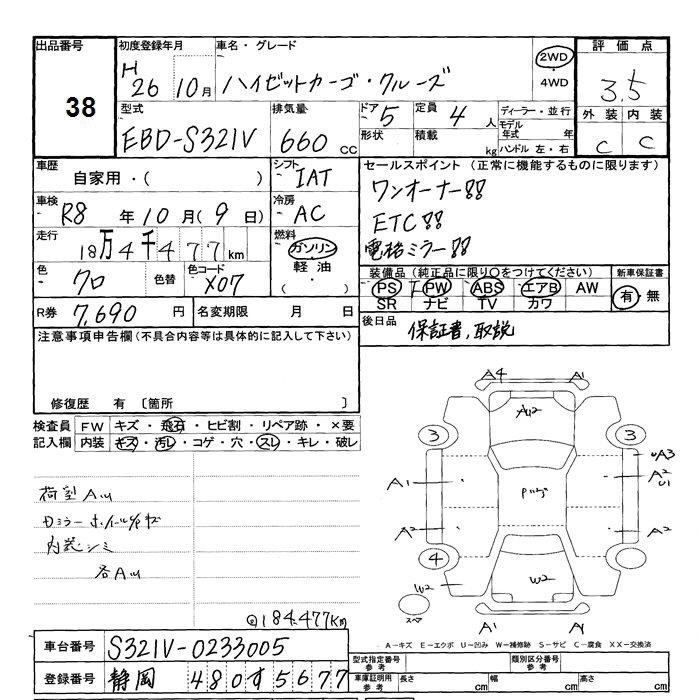 出品番号
38
初度登録年月
H
26 10月
車名・グレード
ハイゼットカーゴ・クルーズ
2WD
・
4WD
評価点
3.5
外装 内装
C C
型式
EBD-S321V
排気量
660 CC
ドア 5
形状
定員 4 人
積載 kg
ディーラー・並行
モデル
年式 年
ハンドル 左・右
車歴
自家用・( )
シフト
IAT
車検
R8 年 10 月 ( 9 日)
冷房
AC
走行
18万4千477 km
燃料
ガソリン
軽油
( )
色
クロ
色替
色コード
X07
R券 7,690 円
名変期限 月 日
セールスポイント (正常に機能するものに限ります)
ワンオーナー!!
ETC!!
電格ミラー!!
装備品 (純正品に限り○をつけてください)
PS PW ABS エアB AW
SR ナビ TV カワ
新車保証書
有・無
後日品
保証書,取説
注意事項申告欄(不具合内容等は具体的に記入して下さい)
修復歴 有 〔箇所 〕
検査員
記入欄
FW キズ・飛石・ヒビ割・リペア跡・×要
内装 キズ・汚レ・コゲ・穴・スレ・キレ・破レ
内装シミ
各AU
184,477km
A4 A1
AU2
3 3
UA3
A1
A2
U1
A2 A2
4
W2 W2
スペア
A1 A1
A-キズ E-エクボ U-凹み W-補修跡 S-サビ C-腐食 XX-交換済
車台番号 S321V-0233005
登録番号 静岡 480 す 5677
型式指定番号
参考
類別区分番号
参考
車庫証明用
参考
長さ cm
幅 cm
高さ cm